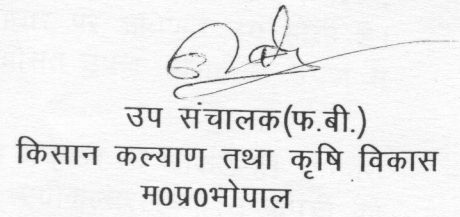 उप संचालक(फ.बी.)
किसान कल्याण तथा कृषि विकास
म0प्र0भोपाल